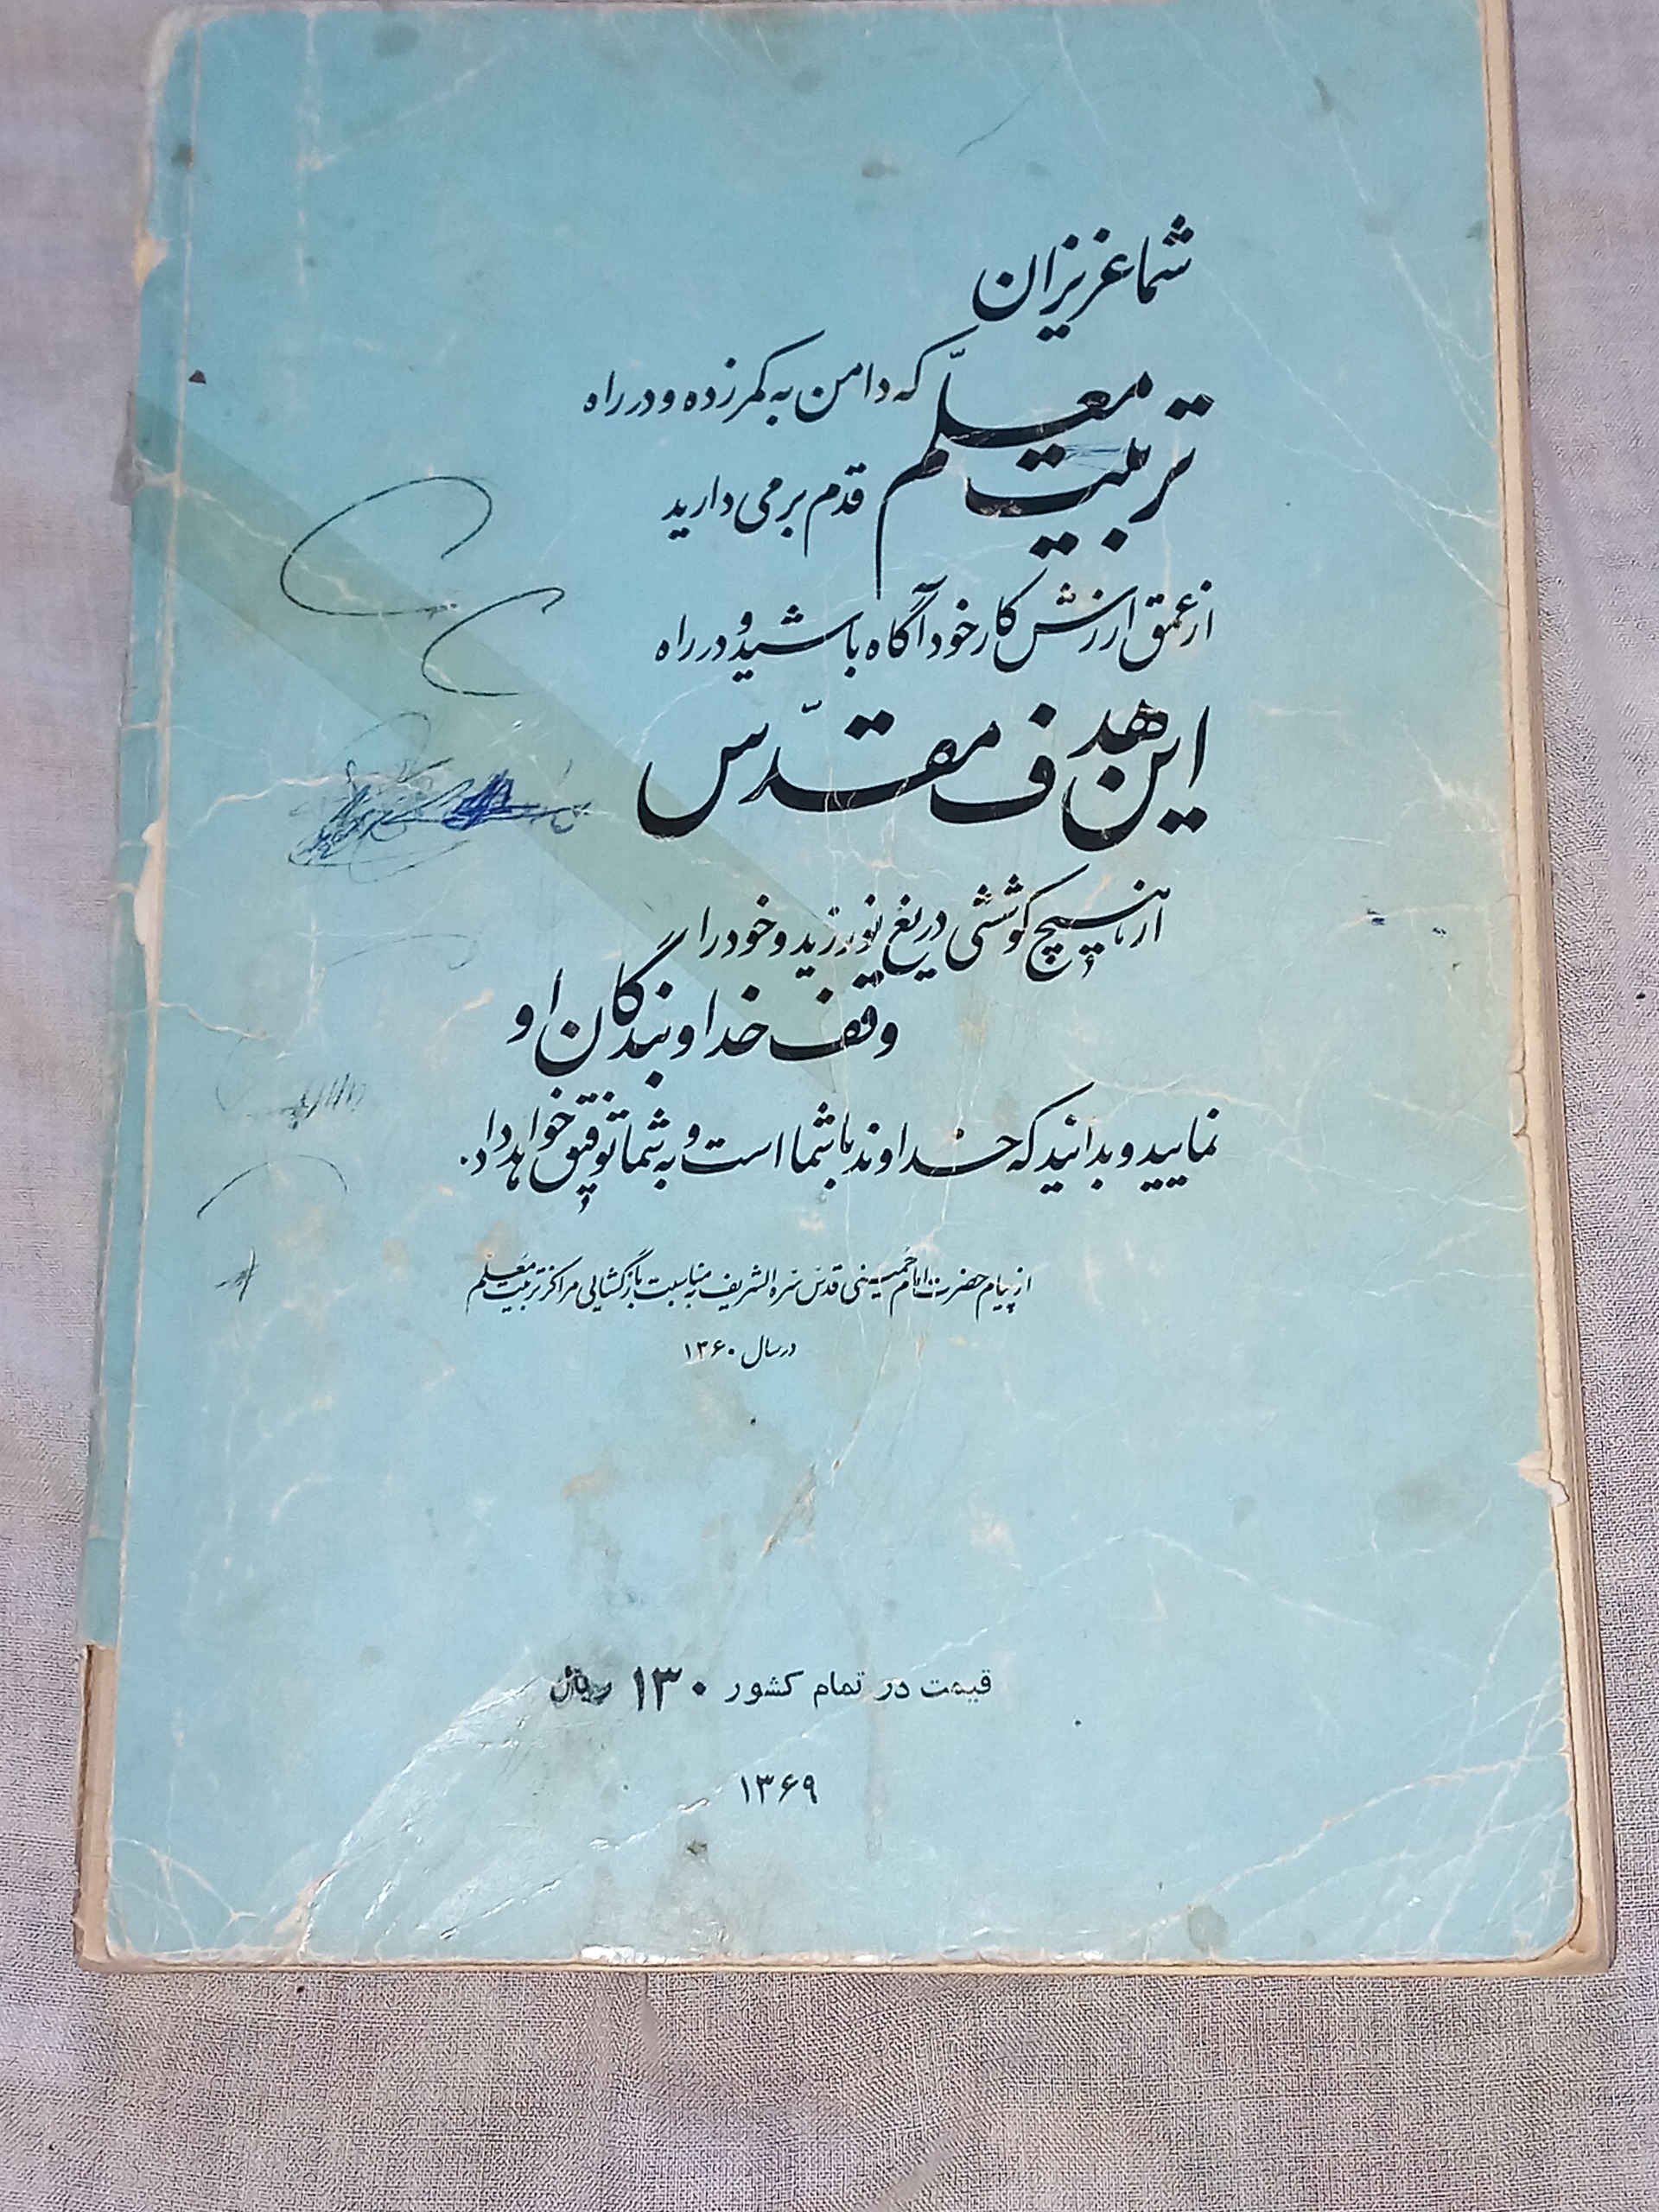 شما عزیزان
که دامن به کمر زده و در راه
تربیت معلّم
قدم برمی دارید
از عمق ارزش کار خود آگاه باشید و در راه
این هدف مقدّس
از هیچ کوششی دریغ نورزید و خود را
وقف خدا و بندگان او
نمایید و بدانید که خداوند با شما است و به شما توفیق خواهد داد.
از پیام حضرت امام خمینی قدس سره الشریف به مناسبت بازگشایی مراکز تربیت معلم
در سال ۱۳۶۰
قیمت در تمام کشور ۱۳۰ ریال
۱۳۶۹